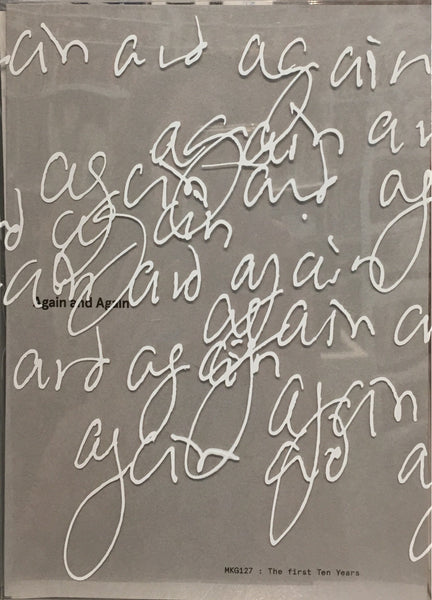 ain and again
again an
again and ag
d again
and again
Again and Again
again a
and again
again
again and a
MKG127 : The first Ten Years